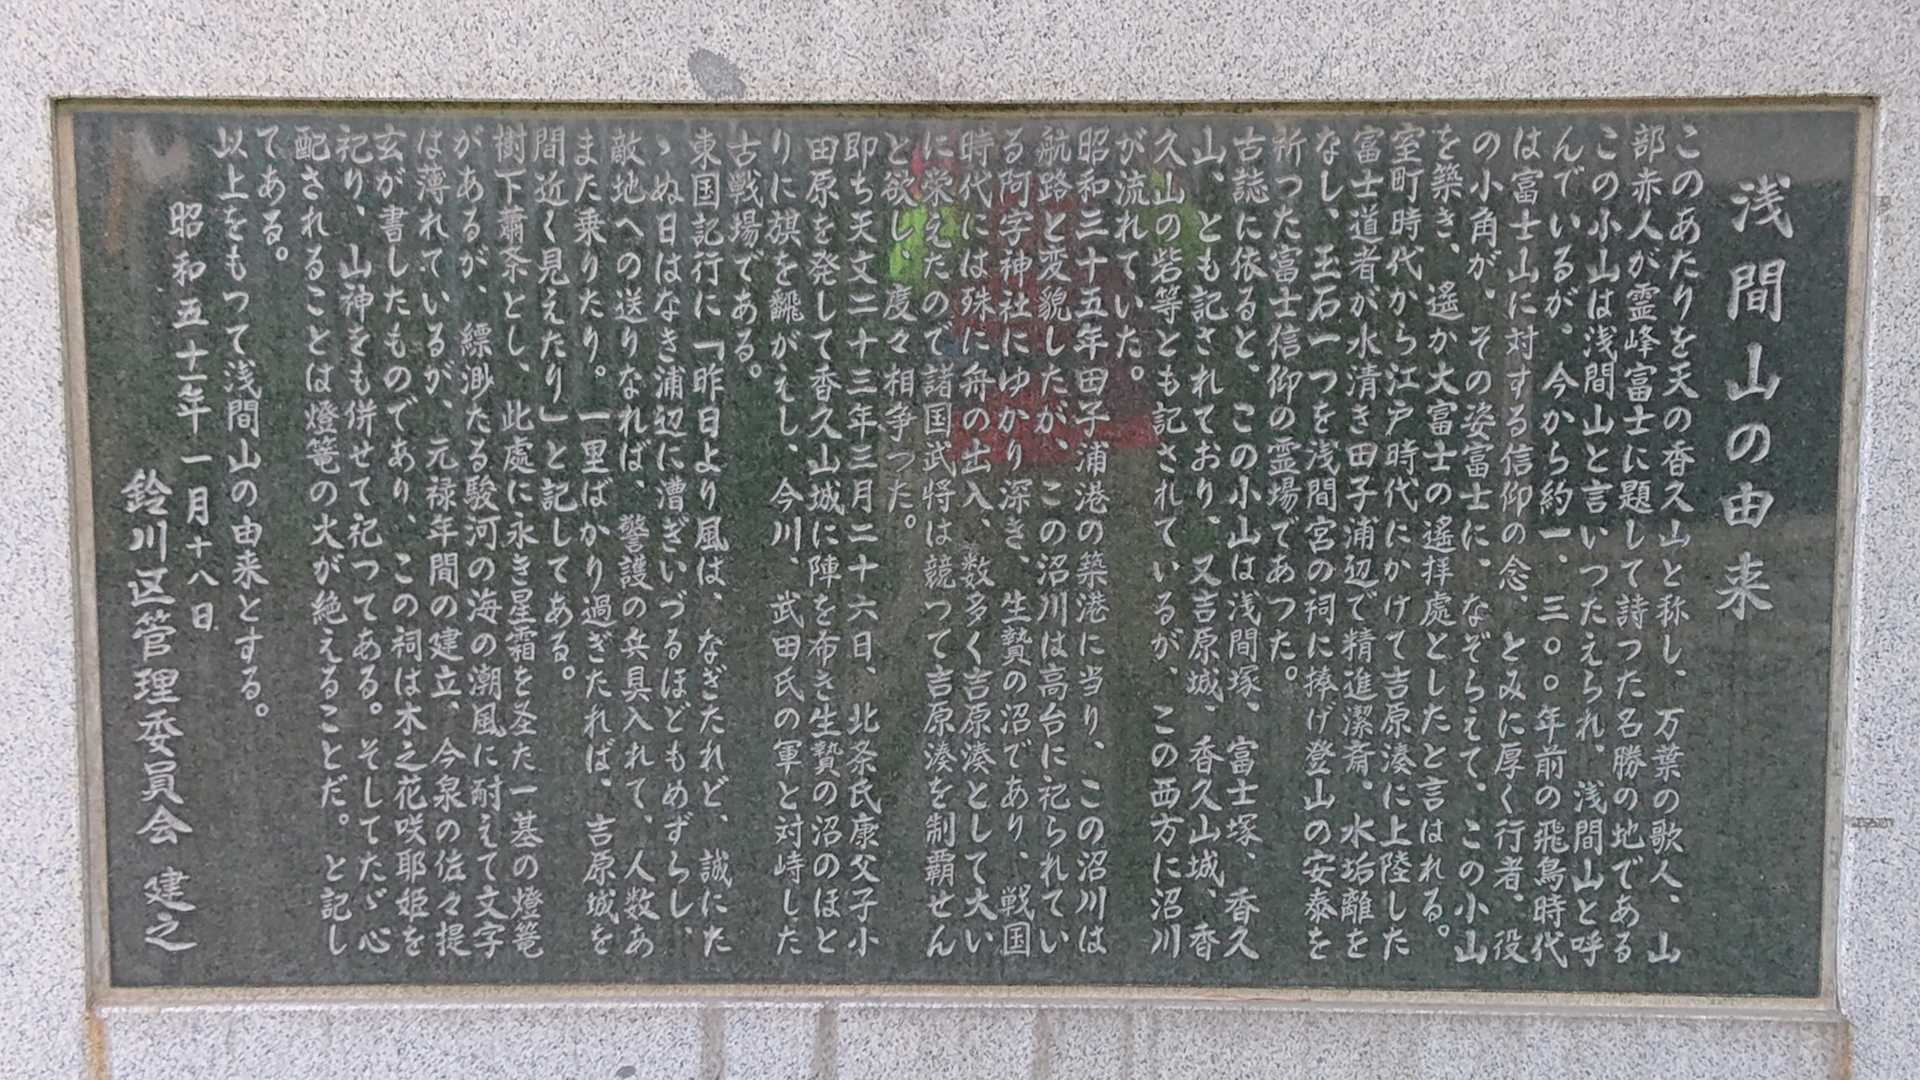 浅間山の由来
このあたりを天の香久山と称し、万葉の歌人、山
部赤人が霊峰富士に題して詩つた名勝の地である
この小山は浅間山と言いつたえられ、浅間山と呼
んでいるが、今から約一、三〇〇年前の飛鳥時代
は富士山に対する信仰の念、とみに厚く行者、役
の小角が、その姿富士に、なぞらえて、この小山
を築き、遙か大富士の遙拝處としたと言はれる。
室町時代から江戸時代にかけて吉原湊に上陸した
富士道者が水清き田子浦辺で精進潔斎、水垢離を
なし、玉石一つを浅間宮の祠に捧げ登山の安泰を
祈つた富士信仰の霊場であつた。
古誌に依ると、この小山は浅間塚、富士塚、香久
山、とも記されており、又吉原城、香久山城、香
久山の砦等とも記されているが、この西方に沼川
が流れていた。
昭和三十五年田子浦港の築港に当り、この沼川は
航路と変貌したが、この沼川は高台に祀られてい
る阿字神社にゆかり深き、生贄の沼であり、戦国
時代には殊に舟の出入、数多く吉原湊として大い
に栄えたので諸国武将は競つて吉原湊を制覇せん
と欲し、度々相争つた。
即ち天文二十三年三月二十六日、北条氏康父子小
田原を発して香久山城に陣を布き生贄の沼のほと
りに旗を飜がえし、今川、武田氏の軍と対峙した
古戦場である。
東国記行に「昨日より風は、なぎたれど、誠にた
ゝぬ日はなき浦辺に漕ぎいづるほどもめずらし、
敵地への送りなれば、警護の兵具入れて、人数あ
また乗りたり。一里ばかり過ぎたれば、吉原城を
間近く見えたり」と記してある。
樹下蕭条とし、此處に永き星霜を圣た一基の燈篭
があるが、縹渺たる駿河の海の潮風に耐えて文字
は薄れているが、元禄年間の建立、今泉の佐々提
玄が書したものであり、この祠は木之花咲耶姫を
祀り、山神をも併せて祀つてある。そしてたゞ心
配されることは燈篭の火が絶えることだ。と記し
てある。
以上をもつて浅間山の由来とする。
昭和五十一年一月十八日
鈴川区管理委員会 建之